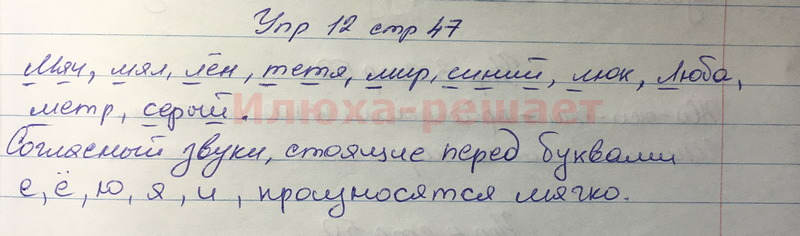 Упр 12 стр 47
Мяч, мял, лён, тетя, мир, синий, люк, Люба,
метр, серый.
Илюха-решает
Согласный звуки, стоящие перед буквами
е, ё, ю, я, и, произносятся мягко.